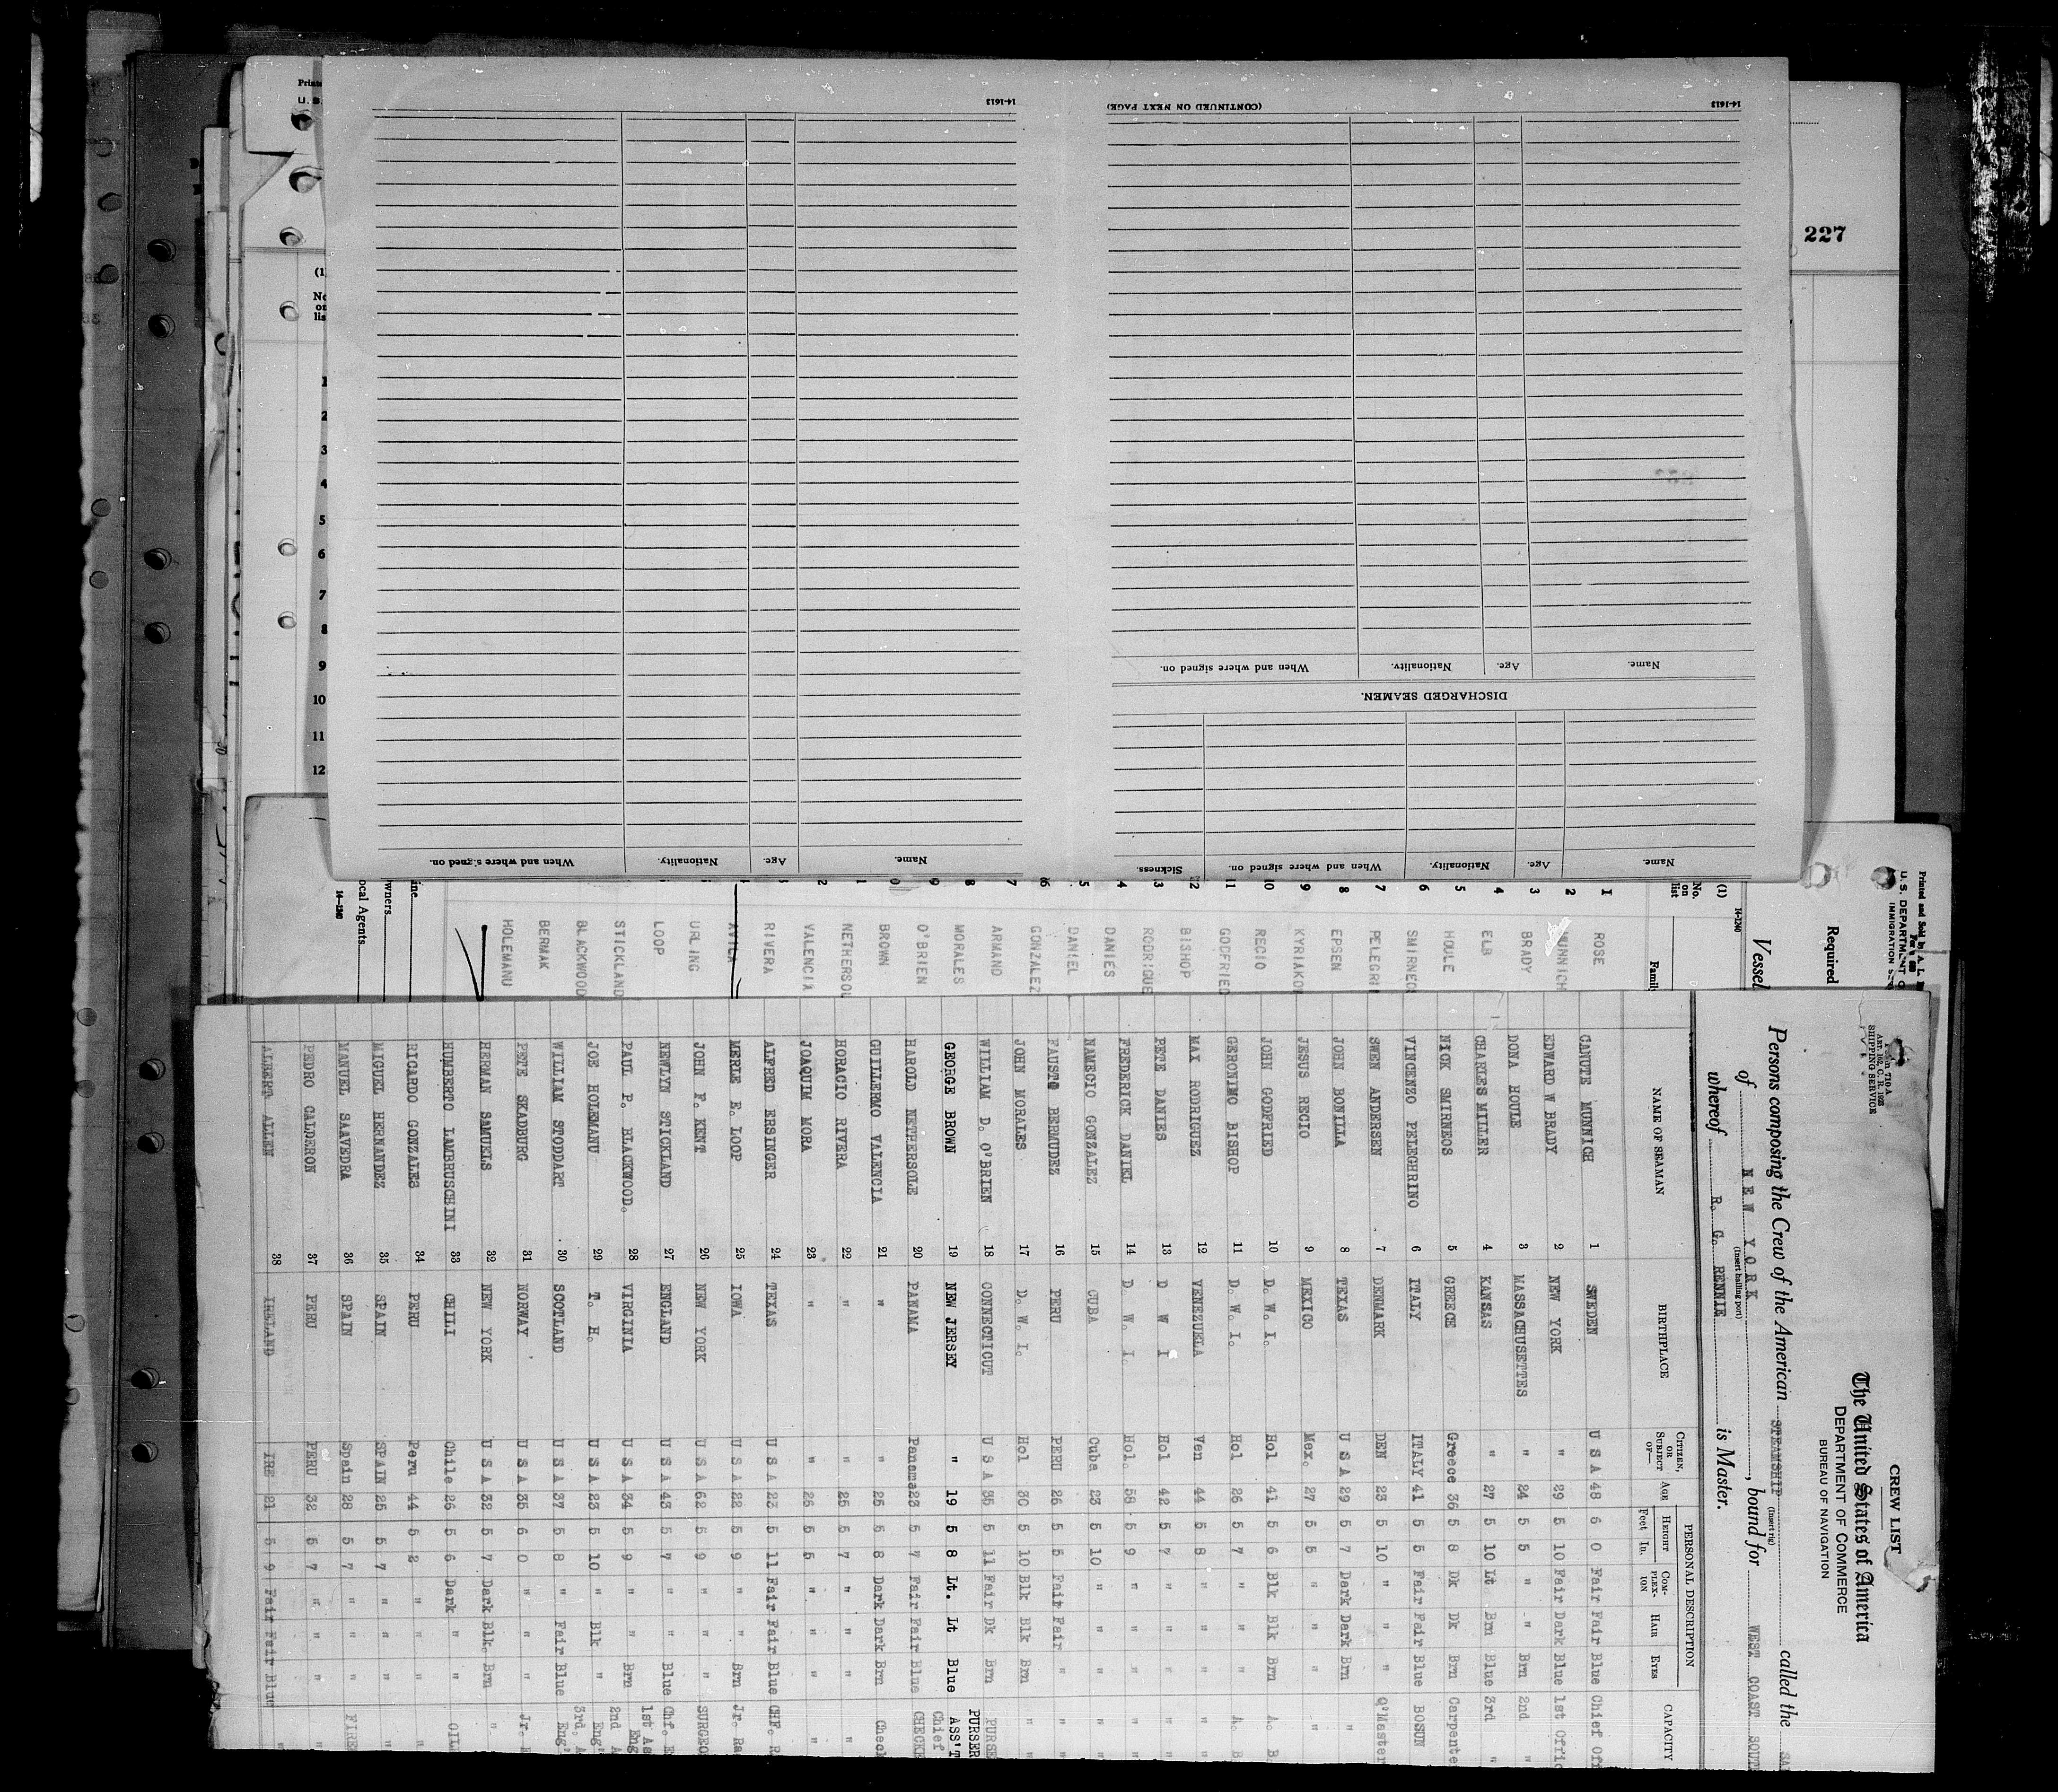 227
14-1613
(CONTINUED ON NEXT PAGE)
14-1613
Name.
Age.
Nationality.
When and where signed on.
DISCHARGED SEAMEN.
Name.
Age.
Nationality.
When and where signed on.
Sickness.
Name.
Age.
Nationality.
When and where signed on.
(1)
1
2
3
4
5
6
7
8
9
10
11
12
Required
Vessel
14-1240
(1)
No.
on
list
1 ROSE
2 MUNNICH
3 BRADY
4 ELB
5 HOULE
6 SMIRNEO
7 PELEGRI
8 EPSEN
9 KYRIAKO
10 RECIO
11 GODFRIED
12 BISHOP
13 RODRIGUE
14 DANIES
15 DANIEL
16 GONZALEZ
17 ARMAND
18 MORALES
19 O'BRIEN
BROWN
NETHERSOL
VALENCIA
RIVERA
AVILA
URLING
LOOP
STICKLAND
BLACKWOOD
BERMAK
HOLEMANU
ocal Agents
wners
14-1240
SHIPPING SERVICE
CREW LIST
The United States of America
DEPARTMENT OF COMMERCE
BUREAU OF NAVIGATION
Persons composing the Crew of the American STEAMSHIP called the
(Insert rig)
of NEW YORK, bound for WEST COAST SOUT
(Insert hailing port)
whereof R. G. RENNIE is Master.
NAME OF SEAMAN BIRTHPLACE CITIZEN, OR SUBJECT OF— AGE PERSONAL DESCRIPTION CAPACITY
HEIGHT Feet In. COMPLEXION HAIR EYES
CANUTE MUNNICH 1 SWEDEN U S A 48 6 0 Fair Fair Blue Chief Of
EDWARD W BRADY 2 NEW YORK " 29 5 10 Fair Dark Blue 1st Offic
DONA HOULE 3 MASSACHUSETTES " 24 5 5 " " Brn 2nd "
CHARLES MILLER 4 KANSAS " 27 5 10 Lt Brn Blue 3rd "
NICK SMIRNEOS 5 GREECE Greece 36 5 8 Dk Dk Brn Carpente
VINCENZO PELEGHRINO 6 ITALY ITALY 41 5 5 Fair Fair Blue BOSUN
SWEN ANDERSEN 7 DENMARK DEN 23 5 10 " " " Q'Master
JOHN BONILLA 8 TEXAS U S A 29 5 7 Dark Dark Brn "
JESUS RECIO 9 MEXICO Mex. 27 5 5 " " " "
JOHN GODFRIED 10 D. W. I. Hol 41 5 6 Blk Blk Brn A. B
GERONIMO BISHOP 11 D. W. I. Hol 26 5 7 " " " A. B
MAX RODRIGUEZ 12 VENEZUELA Ven 44 5 8 " " " "
PETE DANIES 13 D W I Hol 42 5 7 " " " "
FREDERICK DANIEL 14 D. W. I. Hol. 58 5 9 " " " "
NAMECIO GONZALEZ 15 CUBA Cuba 23 5 10 " " " "
FAUSTO BERMUDEZ 16 PERU PERU 26 5 5 Fair Fair " "
JOHN MORALES 17 D. W. I. Hol 30 5 10 Blk Blk Brn "
WILLIAM D. O'BRIEN 18 CONNECTICUT U S A 35 5 11 Fair Dk Brn PURSE
GEORGE BROWN 19 NEW JERSEY " 19 5 8 Lt. Lt Blue ASS'T PURSER
HAROLD NETHERSOLE 20 PANAMA Panama 23 5 7 Fair Fair Blue Chief CHECKE
GUILLERMO VALENCIA 21 " " 25 5 8 Dark Dark Brn Chec
HORACIO RIVERA 22 " " 25 5 7 " " " "
JOAQUIM MORA 23 " " 26 5 5 " " " "
ALFRED ERSINGER 24 TEXAS U S A 23 5 11 Fair Fair Blue CHF. R
MERLE E. LOOP 25 IOWA U S A 22 5 9 " " Brn Jr. Ra
JOHN F. KENT 26 NEW YORK U S A 62 5 9 " " " SURGEO
NEWLYN STICKLAND 27 ENGLAND U S A 43 5 7 " " Blue Chf. E
PAUL P. BLACKWOOD. 28 VIRGINIA U S A 34 5 9 " " Brn 1st As Eng
JOE HOLEMANU 29 T. H. U S A 23 5 10 " Blk " 2nd A Eng'
WILLIAM STODDART 30 SCOTLAND U S A 37 5 8 " Fair Blue 3rd. A Eng'
PETE SKADBURG 31 NORWAY U S A 35 6 0 " " " Jr.
HERMAN SAMUELS 32 NEW YORK U S A 32 5 7 Dark Blk. Brn "
HUMBERTO LAMBRUSCHINI 33 CHILI Chile 26 5 6 Dark " " OIL
RICARDO GONZALES 34 PERU Peru 44 5 2 " " " "
MIGUEL HERNANDEZ 35 SPAIN SPAIN 25 5 7 " " " "
MANUEL SAAVEDRA 36 SPAIN Spain 28 5 7 " " " FIRE
PEDRO CALDERON 37 PERU PERU 32 5 7 " " " "
ALBERT ALLEN 38 IRELAND IRE 21 5 9 Fair Fair Blue "